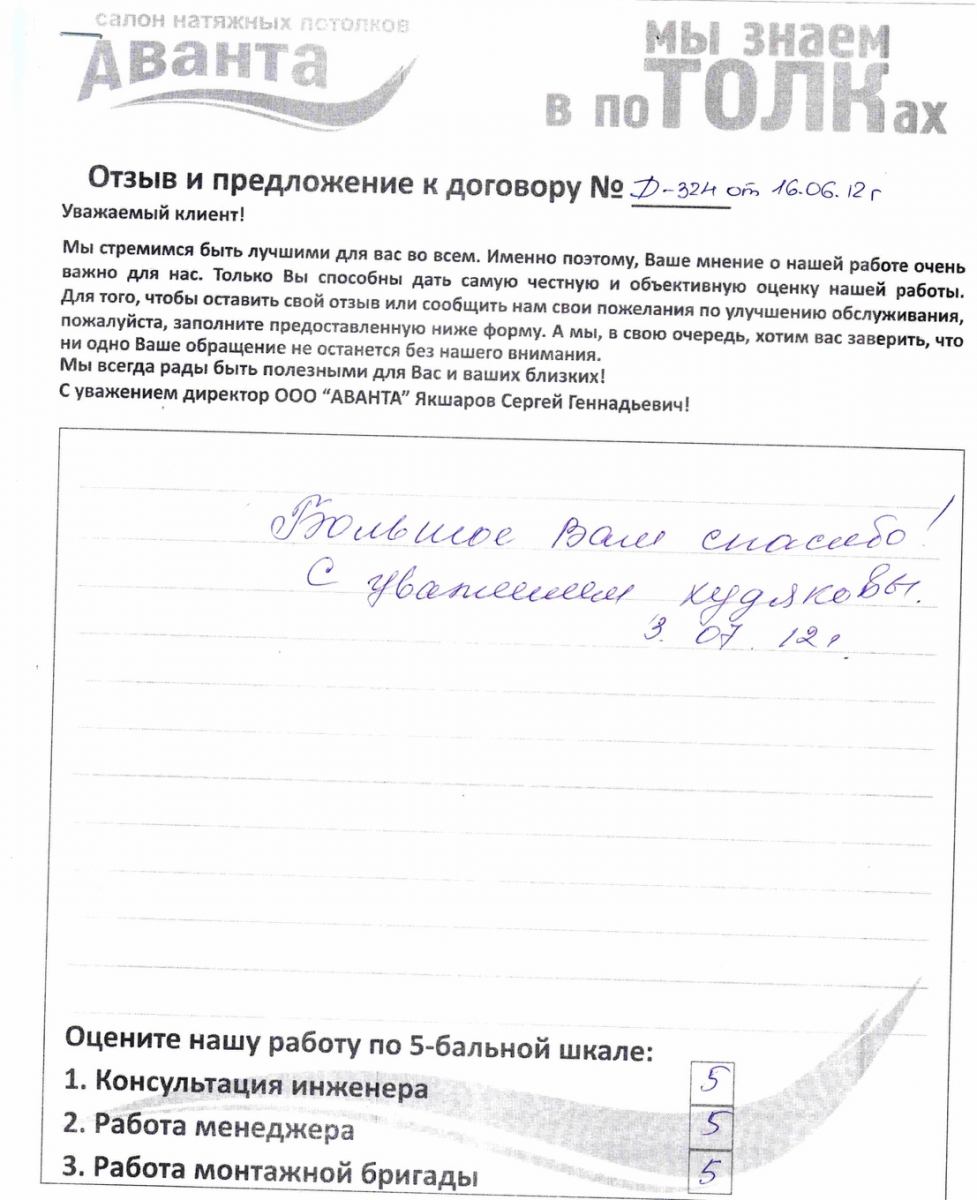 салон натяжных потолков
Аванта
мы знаем
в поТОЛКах
Отзыв и предложение к договору № Д-324 от 16.06.12 г
Уважаемый клиент!
Мы стремимся быть лучшими для вас во всем. Именно поэтому, Ваше мнение о нашей работе очень
важно для нас. Только Вы способны дать самую честную и объективную оценку нашей работы.
Для того, чтобы оставить свой отзыв или сообщить нам свои пожелания по улучшению обслуживания,
пожалуйста, заполните предоставленную ниже форму. А мы, в свою очередь, хотим вас заверить, что
ни одно Ваше обращение не останется без нашего внимания.
Мы всегда рады быть полезными для Вас и ваших близких!
С уважением директор ООО “АВАНТА” Якшаров Сергей Геннадьевич!
Большое Вам спасибо!
С уважением Худяковы.
3. 07. 12 г.
Оцените нашу работу по 5-бальной шкале:
1. Консультация инженера 5
2. Работа менеджера 5
3. Работа монтажной бригады 5